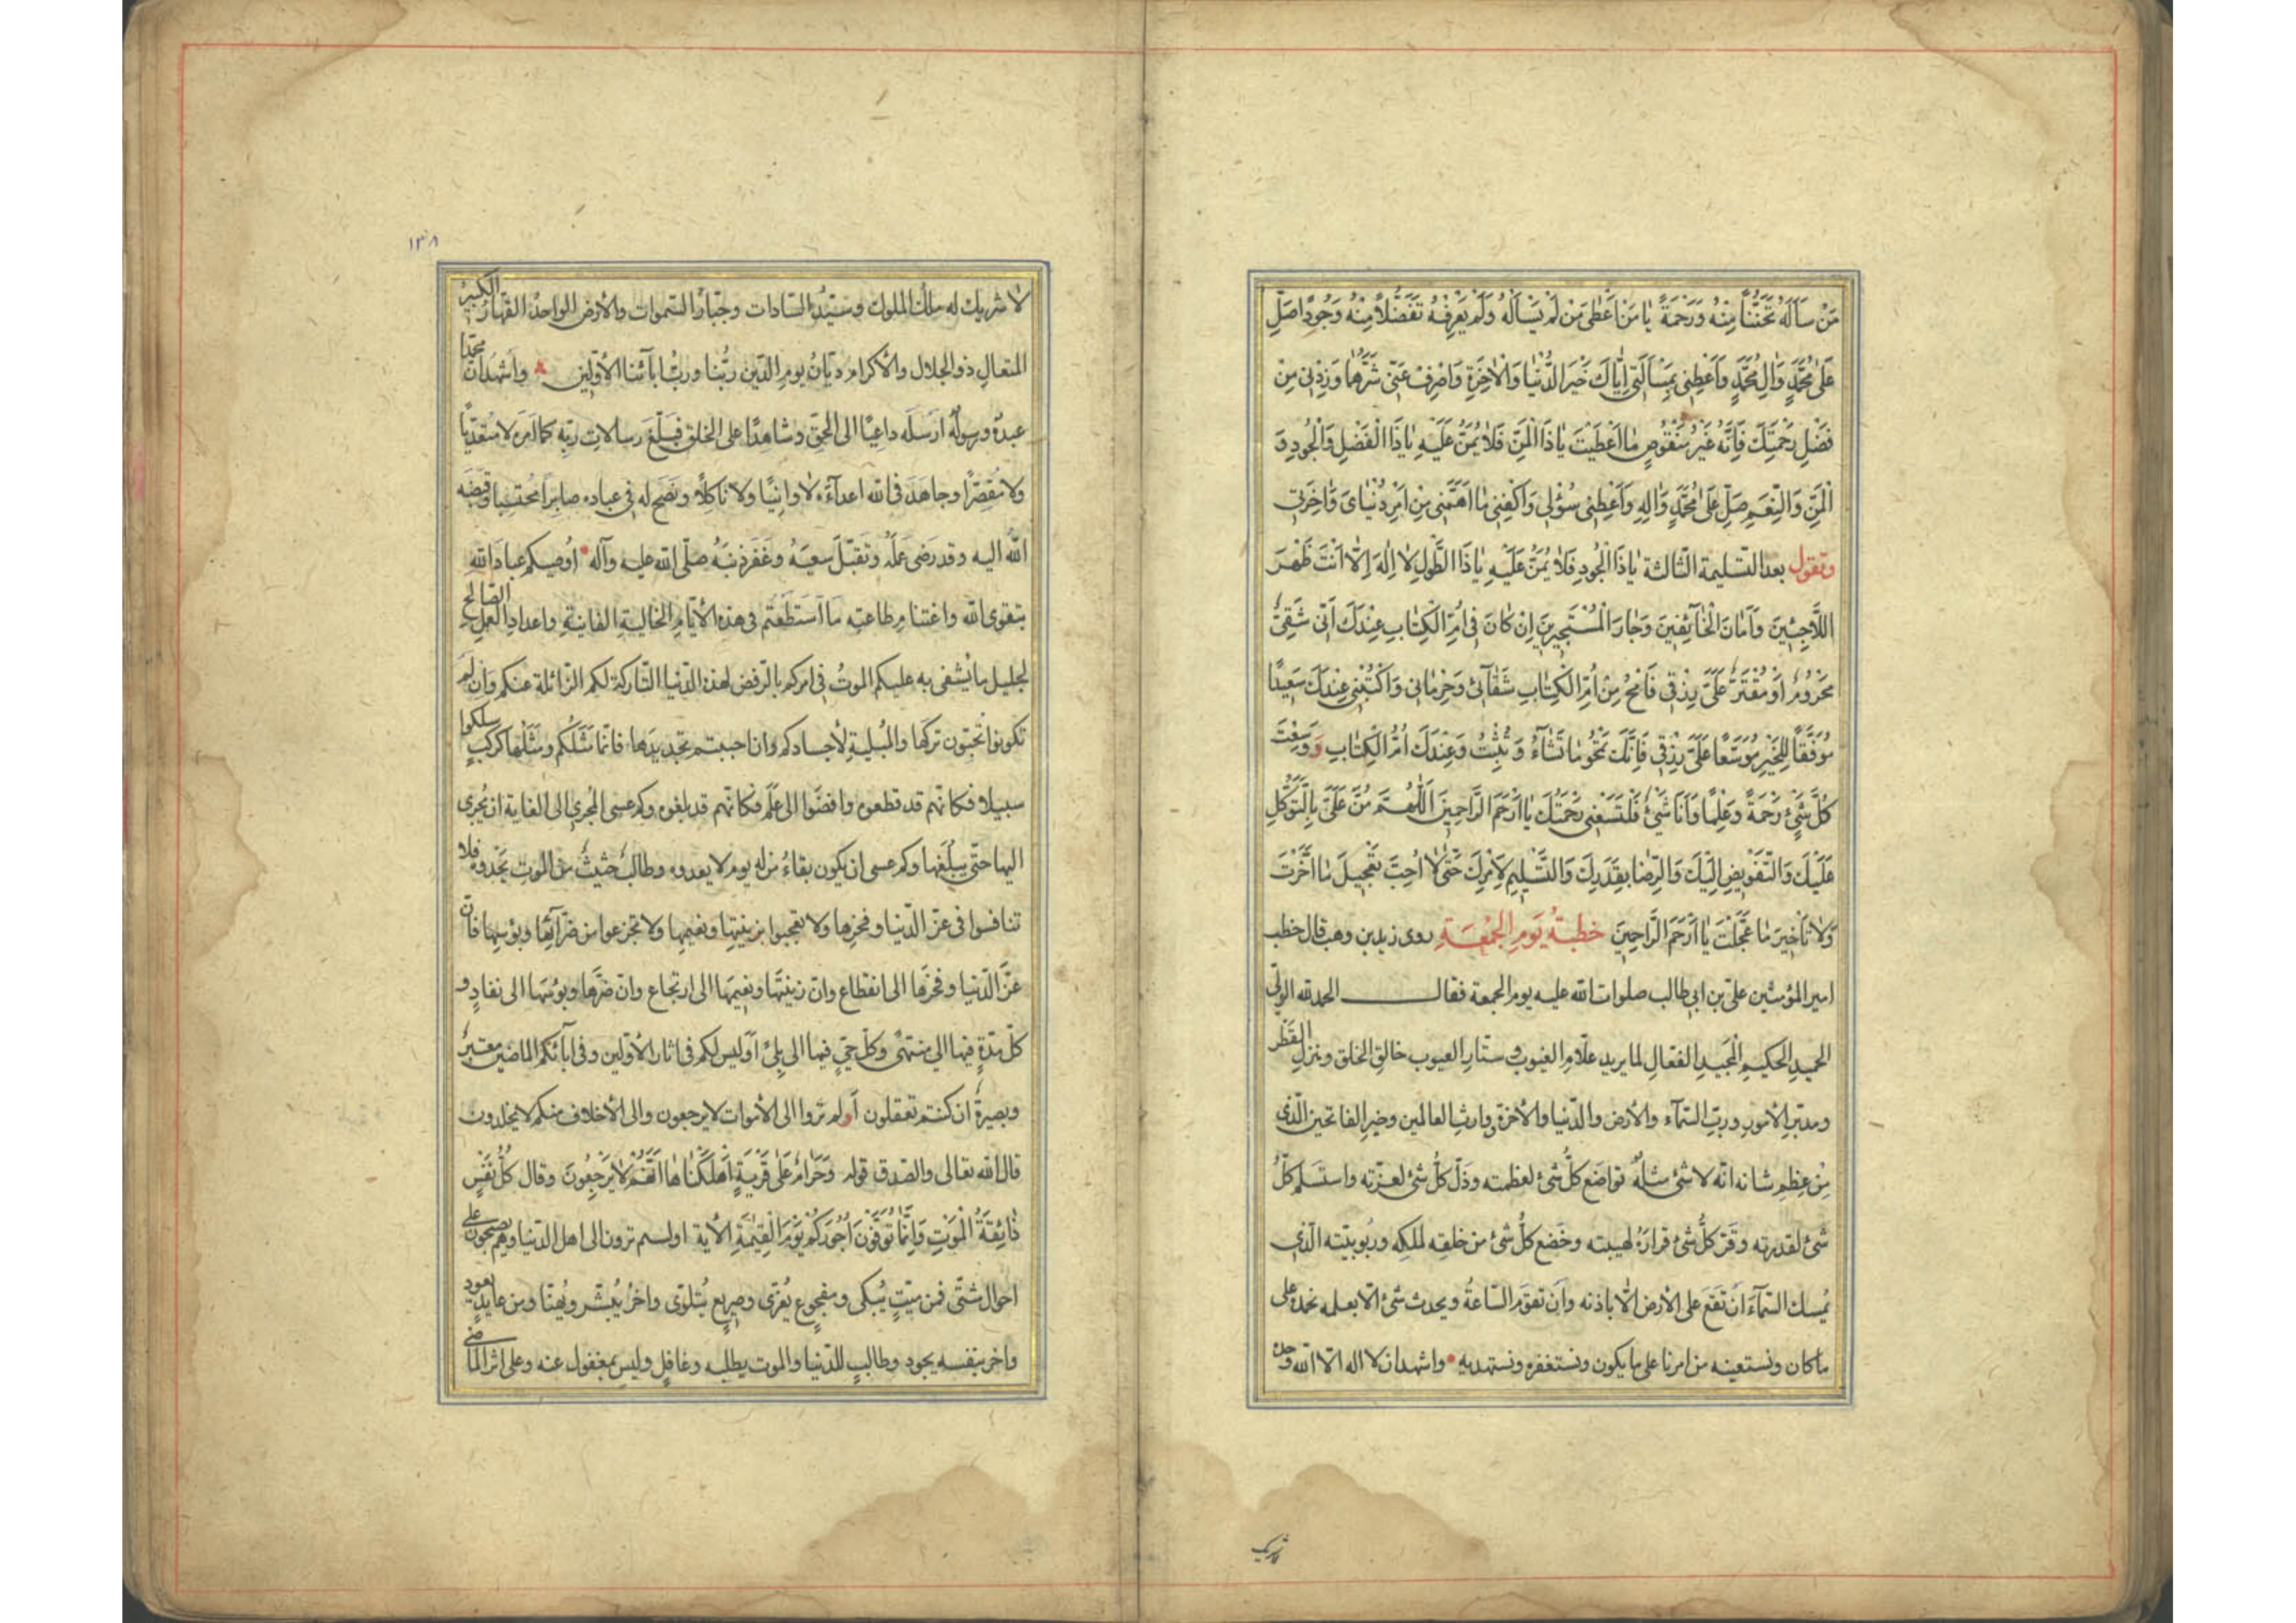 مَنْ سَأَلَهُ تَحَنُّنًا مِنْهُ وَرَحْمَةً يَا مَنْ أَعْطَى مَنْ لَمْ يَسْأَلْهُ وَلَمْ يَعْرِفْهُ تَفَضُّلًا مِنْهُ وَجُودًا صَلِّ
عَلَى مُحَمَّدٍ وَآلِ مُحَمَّدٍ وَأَعْطِنِي بِمَسْأَلَتِي إِيَّاكَ خَيْرَ الدُّنْيَا وَالْآخِرَةِ وَاصْرِفْ عَنِّي شَرَّهُمَا وَزِدْنِي مِنْ
فَضْلِ رَحْمَتِكَ فَإِنَّهُ غَيْرُ مَنْقُوصٍ مَا أَعْطَيْتَ يَا ذَا الْمَنِّ فَلَا يُمَنُّ عَلَيْهِ يَا ذَا الْفَضْلِ وَالْجُودِ وَ
الْمَنِّ وَالنِّعَمِ صَلِّ عَلَى مُحَمَّدٍ وَآلِهِ وَأَعْطِنِي سُؤْلِي وَاكْفِنِي مَا أَهَمَّنِي مِنْ أَمْرِ دُنْيَايَ وَآخِرَتِي
وتقول بعد التسليمة الثالثة يَا ذَا الْجُودِ فَلَا يُمَنُّ عَلَيْهِ يَا ذَا الطَّوْلِ لَا إِلَهَ إِلَّا أَنْتَ ظَهْرَ
اللَّاجِئِينَ وَأَمَانَ الْخَائِفِينَ وَجَارَ الْمُسْتَجِيرِينَ إِنْ كَانَ فِي أُمِّ الْكِتَابِ عِنْدَكَ أَنِّي شَقِيٌّ
مَحْرُومٌ أَوْ مُقْتَرٌ عَلَيَّ رِزْقِي فَامْحُ مِنْ أُمِّ الْكِتَابِ شَقَائِي وَحِرْمَانِي وَاكْتُبْنِي عِنْدَكَ سَعِيدًا
مُوَفَّقًا لِلْخَيْرِ مُوَسَّعًا عَلَيَّ رِزْقِي فَإِنَّكَ تَمْحُو مَا تَشَاءُ وَتُثْبِتُ وَعِنْدَكَ أُمُّ الْكِتَابِ وَ وَسِعْتَ
كُلَّ شَيْءٍ رَحْمَةً وَعِلْمًا وَأَنَا شَيْءٌ فَلْتَسَعْنِي رَحْمَتُكَ يَا أَرْحَمَ الرَّاحِمِينَ اللَّهُمَّ مُنَّ عَلَيَّ بِالتَّوَكُّلِ
عَلَيْكَ وَالتَّفْوِيضِ إِلَيْكَ وَالرِّضَا بِقَدَرِكَ وَالتَّسْلِيمِ لِأَمْرِكَ حَتَّى لَا أُحِبَّ تَعْجِيلَ مَا أَخَّرْتَ
وَلَا تَأْخِيرَ مَا عَجَّلْتَ يَا أَرْحَمَ الرَّاحِمِينَ خطبةُ يَومِ الجمُعَةِ روى زيد بن وهب قال خطب
امير المؤمنين علي بن ابي طالب صلوات الله عليه يوم الجمعة فقال الحمد لله الوليّ
الحميدِ الحكيمِ المجيدِ الفعّالِ لما يريد علّامِ الغيوب وستّارِ العيوب خالقِ الخلق ومنزلِ القَطْر
ومدبّرِ الأمورِ وربِّ السّمآء والأرض والدّنيا والأخرة وارثِ العالمين وخيرِ الفاتحين الّذى
مِن عِظَمِ شانه انّه لا شئ مثلُه تواضَع كلُّ شئ لعظمته وذَلّ كلُّ شئ لعزّته واستسلم كلُّ
شئ لقدرته وقَرّ كلُّ شئ قرارَهُ لهيبته وخَضَع كلُّ شئ من خلقه لملكِه وربوبيّته الّذى
يُمسك السّمآءَ أن تَقَعَ على الأرض الّا باذنه وأن تقوَم السّاعةُ ويحدث شئ الّا بعلمه نحمدُه على
ما كان ونستعينه من امرنا على ما يكون ونستغفره ونستهديه واشهد ان لا اله الّا الله وحده
لا شريك
١٣٨
لا شريك له ملك الملوك وسيّدُ السّادات وجبّارُ السّموات والأرض الواحدُ القهّارُ الكبيرُ
المتعالِ ذو الجلال والأكرام ديّانُ يومِ الدّين ربُّنا وربُّ ابآئنا الأوّلين واَشهدُ انّ محمّدا
عبدُه ورسولُه اَرسَلَه داعِيًا الى الحقّ وشاهدًا على الخلق فبَلّغ رسالاتِ ربّه كما اَمَره لا متعدّيًا
ولا مقصّرًا وجاهَدَ فى الله اعدآءَه لا وانيًا ولا ناكلًا ونَصَح له فى عباده صابرًا محتسبا وقبَضَه
الله اليه وقد رَضى عَمَلَه وتَقَبّلَ سعيَهُ وغَفَر ذنبَهُ صلّى الله عليه وآله اُوصيكم عبادَ الله
بتقوى الله واغتنامِ طاعتِه مَا استَطَعتم فى هذه الأيّام الخاليةِ الفانيةِ واعدادِ العملِ الصّالح
لجليل ما يُشفى به عليكم الموتُ فى امركم بالرّفض لهذه الدّنيا التّاركة لكم الزّائلة عنكم وَان لم
تكونوا تحبّون تركها والمُبليةِ لأجسادكم وان احببتم تجديدَها فانّما مَثَلُكم ومَثَلُها كرَكبٍ سلكوا
سبيلا فكانّهم قد قطعوه وافضَوا الى عَلَم فكانّهم قد بلغوه وكم عسى المُجرى الى الغاية ان يُجرى
اليها حتّى يبلُغَها وكم عسى ان يكون بقاءُ من له يوم لا يعدوه وطالبٌ حثيثٌ من الموتِ يَحْدوه فلا
تنافسوا فى عزّ الدّنيا وفخرِها ولا تعجبوا بزينتِها ونعيمِها ولا تجزعوا من ضرّآئِها وبؤسِها فانّ
عزَّ الدّنيا وفخرَها الى انقطاع وانّ زينتَها ونعيمَها الى ارتجاع وانّ ضرّها وبؤسَها الى نفادٍ و
كلّ مدّةٍ فيها الى منتهىً وكلّ حيٍّ فيها الى بِلىً اَوَليس لكم فى اثار الأوّلين وفى آبائكم الماضين معتبرٌ
وبصيرةٌ ان كنتم تعقلون اَولم تَروا الى الأموات لا يرجعون والى الأخلاف منكم لا يخلدون
قال الله تعالى والصّدق قوله وَحَرَامٌ عَلَى قَرْيَةٍ أَهْلَكْنَاهَا أَنَّهُمْ لَا يَرْجِعُونَ وقال كُلُّ نَفْسٍ
ذَائِقَةُ الْمَوْتِ وَإِنَّمَا تُوَفَّوْنَ أُجُورَكُمْ يَوْمَ الْقِيمَةِ الأية اولستم ترون الى اهل الدّنيا وهم يصبحون على
احوالٍ شتّى فمن ميّتٍ يُبكى ومفجوعٍ يُعزّى وصريعٍ يتلوّى واخرُ يُبشّر ويُهنّا ومن عايدٍ يعود
واخر بنفسه يجود وطالبٍ للدّنيا والموت يطلبه وغافلٍ وليس بمغفول عنه وعلى اثر الماضى